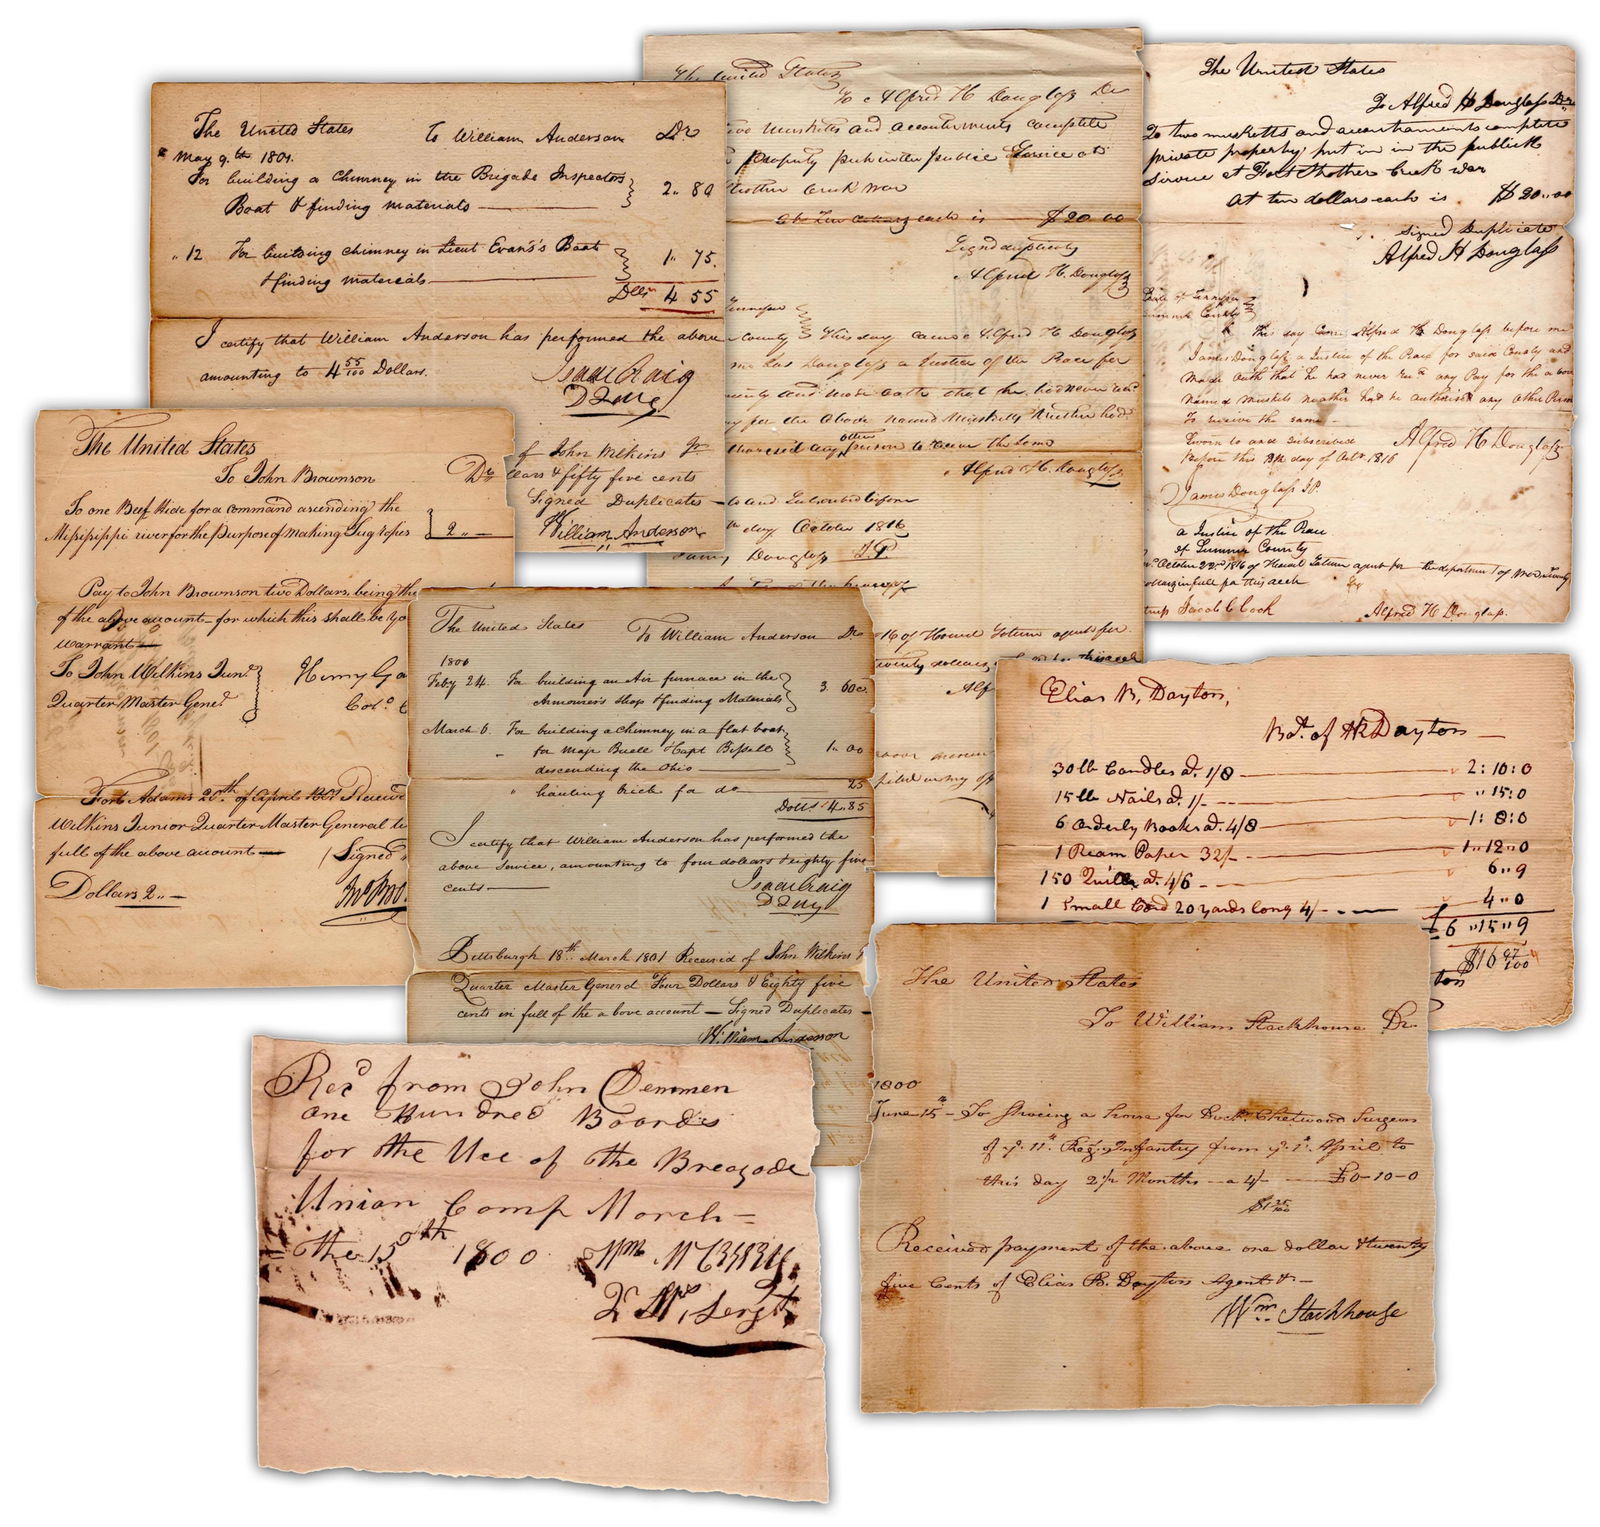 The United States To William Anderson Dr
May 9.th 1801.
For building a Chimney in the Brigade Inspectors
Boat & finding materials 2.. 80
.. 12 For building chimney in Lieut Evans's Boat
& finding materials 1.. 75.
Dolls 4 55
I certify that William Anderson has performed the above
amounting to 4 55/100 Dollars.
Isaac Craig
D Q M G
of John Wilkins Jr
lars & fifty five cents
Signed Duplicates
William Anderson
The United States
To Alfred H Douglass Dr
two musketts and accouterments complete
property put into publick Service at
Strother Creek war
At Ten dollars each is $20 00
Signd duplicity
Alfred H. Douglass
Tennessee
County This day came Alfred H Douglass
me Jas Douglass a Justice of the Peace for
county and made oath that he had never
for the above named Musketts Neither had
other
person to receive the same
Alfred H. Douglass
to and Subscribed before
day October 1816
James Douglass J.P.
16 of Howel Tatum agent for
twenty dollars
The United States
To Alfred H Douglass Dr
To two musketts and accoutraments complete
private property put in in the publick
Service at Fort Strother Creek war
At ten dollars each is $20..00
Signed Duplicate
Alfred H Douglass
State of Tennessee
Sumner County
This day Came Alfred H Douglass before me
James Douglass a Justice of the Peace for said County and
made Oath that he had never any Pay for the above
named muskets neather had he authorised any other Person
To receive the same
Sworn to and Subscribed Alfred H Douglass
before this day of Octr. 1816
James Douglass J.P.
a Justice of the Peace
of Sumner County
October 22d 1816 of Howel Tatum agent for the department of war twenty
dollars in full for this acct
Jacob C Cook Alfred H Douglass.
The United States
To John Brownson Dr
To one Beef Hide for a command ascending the
Mississippi river for the purpose of making Tug ropes 2 ..
Pay to John Brownson two Dollars, being the
of the above account for which this shall be yo
warrant
To John Wilkins Junr. Henry Ga
Quarter Master Genel. Col.o
Fort Adams 20th of April 1801 Receive
Wilkins Junior Quarter Master General
full of the above account Signed
Dollars 2..
Jno Bro
The United States To William Anderson Dr
1801
Feby 24. For building an Air furnace in the
Armourer's Shop & finding Materials 3. 60
March 6. For building a chimney in a flat boat
for Majr Buell & Capt Bissell 1.. 00
descending the Ohio
" hauling brick for do 25
Dolls 4.85
I certify that William Anderson has performed the
above Service, amounting to four dollars & eighty five
cents
Isaac Craig
D Q M G
Pittsburgh 18th. March 1801 Received of John Wilkins
Quarter Master General Four Dollars & Eighty five
cents in full of the above account Signed Duplicates
William Anderson
Elias B, Dayton,
Bt. of Dayton
30 lb Candles at. 1/8 2: 10: 0
15 lb Nails at. 1/- " 15: 0
6 Orderly Books at. 4/8 1: 8: 0
1 Ream Paper 32/- 1 " 12 " 0
150 Quills at. 4/6 6 " 9
1 Small Cord 20 yards long 4/- 4 " 0
£ 6 " 15 " 9
$16 97/100
ton
The United States
To William Stackhouse Dr.
1800
June 15th To Shoeing a horse for Doctr. Chetwood Surgeon
of ye. 11th Regt. Infantry from ye. 1st. April to
this day 2½ Months a 4/- £0-10-0
$1 25/100
Received payment of the above one dollar & twenty
five Cents of Elias B. Dayton Agent &
Wm. Stackhouse
Recd from John Demmen
one Hundred Boards
for the Use of the Breagade
Union Camp March
The 15th 1800 Wm
Q M, Sergt